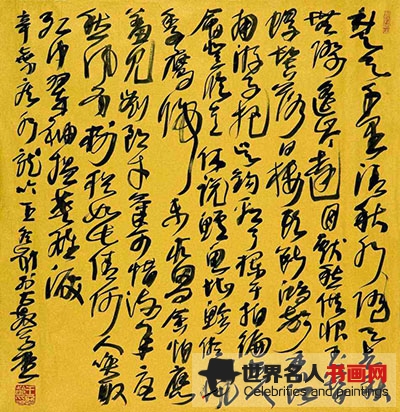 楚天千里清秋水随天去秋
无际遥岑远目献愁供恨玉簪
螺髻落日楼头断鸿声里江
南游子把吴钩看了栏干拍遍无人
会登临意休说鲈鱼堪脍尽西风
季鹰归未求田问舍怕应
羞见刘郎才气可惜流年忧
愁风雨树犹如此倩何人唤取
红巾翠袖揾英雄泪
辛弃疾水龙吟
世界名人书画网
Celebrities and paintings